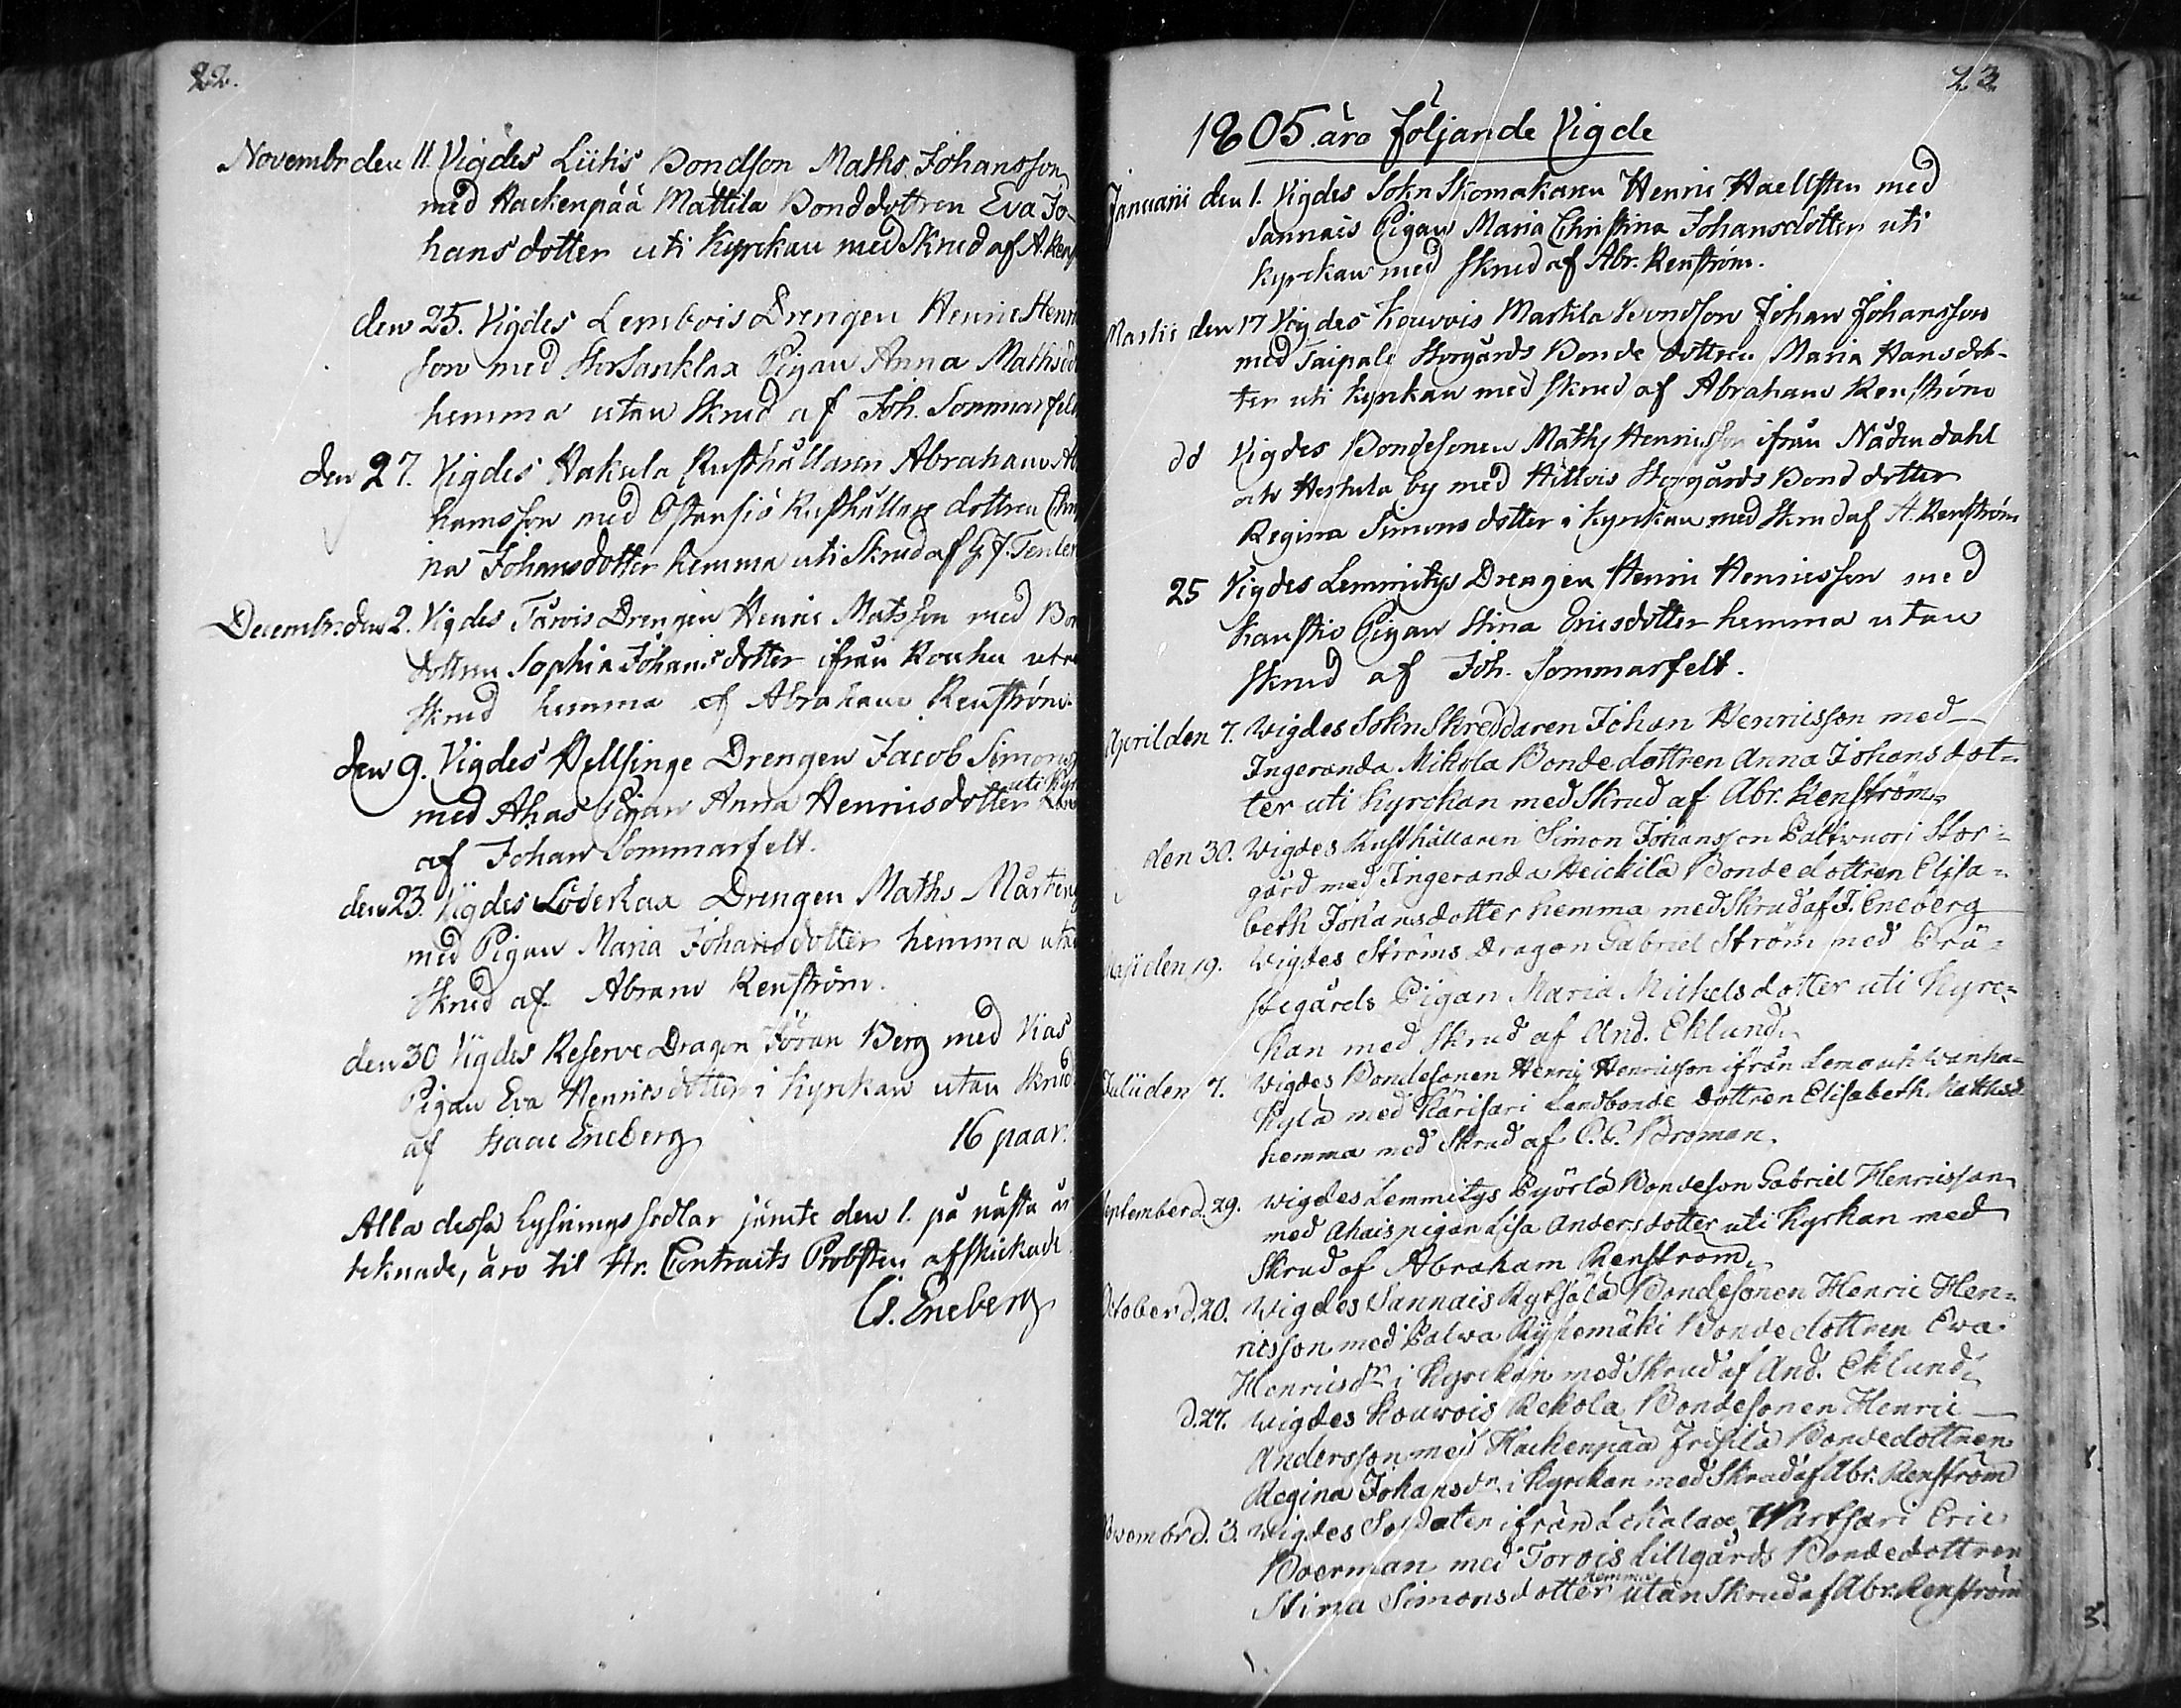 22.
Novembr den 11. Vigdes Liitis Bondson Maths Johansson
med Hackenpää Mattila Bonddottren Eva Jo-
hansdotter uti Kyrckan med Skrud af A. Ren
den 25. Vigdes Lembois Drengen Henric Henri
son med Storsanklax Pigan Anna Mathsdot
hemma utan Skrud af Joh. Sommarfelt
den 27. Vigdes Hakula Rusthållaren Abraham Ab
hamsson med Ostensiö Rusthållare dottren Chri
na Johansdotter hemma uti Skrud af
Decembr. den 2. Vigdes Tårvis Drengen Henric Matsson med Bon
dottren Sophia Johansdotter ifrån Rouhu utan
Skrud hemma af Abraham Renström.
den 9. Vigdes Hellsinge Drengen Jacob Simons
med Ahas Pigan Anna Henricsdotter uti Kyr
af Johan Sommarfelt.
den 23. Vigdes Löderlax Drengen Maths Mårtens
med Pigan Maria Johansdotter hemma utan
Skrud af Abram Renström.
den 30 Vigdes Reserve Dragon Jöran Berg med Vias
Pigan Eva Henricsdotter i Kyrckan utan Skrud
af Isaac Eneberg
16 paar.
Alla dessa Lysnings sedlar jämte den 1. på nästa år
teknade, äro til Hr. Contracts Probsten afskickade
Is. Eneberg
23
1805 äro följande Vigde
Januarii den 1. Vigdes Sokn Skomakaren Henric Haellsten med
Sannais Pigan Maria Christina Johansdotter uti
Kyrckan med Skrud af Abr. Renström.
Martii den 17 Vigdes Kouvois Markila Bondson Johan Johansson
med Taipale Storgårds Bonde dottren Maria Hansdot-
ter uti Kyrckan med Skrud af Abraham Renström
dd Vigdes Bondesonen Maths Henricsson ifrån Nådendahl
och Hertula by med Hillois Storgårds Bond dotter
Regina Simonsdotter i Kyrckan med Skrud af A. Renström
25 Vigdes Lemmitys Drengen Henric Henricsson med
Kanstio Pigan Stina Ericsdotter hemma utan
Skrud af Joh. Sommarfelt.
April den 7. Wigdes Sokn Skreddaren Johan Henricsson med
Ingeranda Mikola Bondedottren Anna Johansdot=
ter uti Kyrckan med Skrud af Abr. Renström.
den 30. Wigdes Rusthållaren Simon Johansson Paltvuori Stor=
gård med Ingeranda Heickilä Bondedottren Elisa=
beth Johansdotter hemma med Skrud af J. Eneberg
Maji den 19. Wigdes Ströms Dragon Gabriel Ström med Prä=
stegårds Pigan Maria Michelsdotter uti Kyrc=
kan med Skrud af And. Eklund.
Julii den 7. Wigdes Bondesonen Henric Henricsson ifrån Lemo och Wanha=
kylä med Karisari Landbonde dottren Elisabeth Mathsd:
hemma med Skrud af C. G. Broman.
September d. 29. Wigdes Lemmitys Pyörlä Bondeson Gabriel Henricsson
med Ahais pigan Lisa Andersdotter uti Kyrkan med
Skrud af Abraham Renström.
October d. 20. Wigdes Sannais Kytsälä Bondesonen Henric Hen=
ricsson med Palva Ryhemäki Bondedottren Eva
Henricsdr i Kyrckan med Skrud af And. Eklund.
d. 27. Wigdes Kouwois Rekola Bondesonen Henric
Andersson med Hackenpää Jrihilä Bondedottren
Regina Johansdr. i Kyrckan med Skrud af Abr. Renström
Novembr d. 3. Wigdes Soldaten ifrån Lehalax Wartsari Eric
Boerman med Torois Lillgårds Bondedottren
Stina Simonsdotter hemma utan Skrud af Abr. Renström